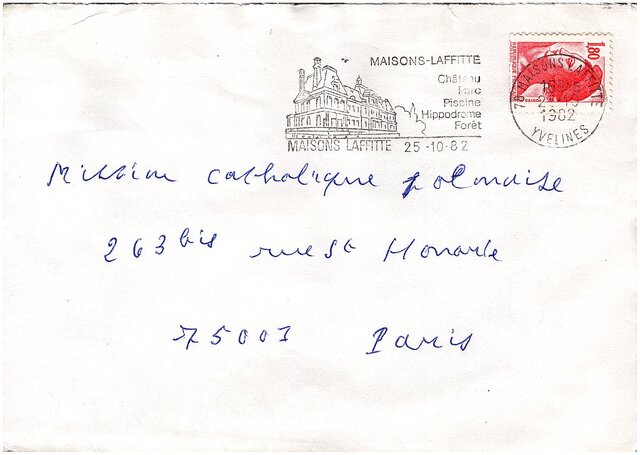 MAISONS-LAFFITTE
Château
Parc
Piscine
Hippodrome
Forêt
MAISONS LAFFITTE 25-10-82
1,80
78 MAISONS LAFFITTE
1982
YVELINES
Mission catholique polonaise
263 bis rue St Honorie
75001 Paris